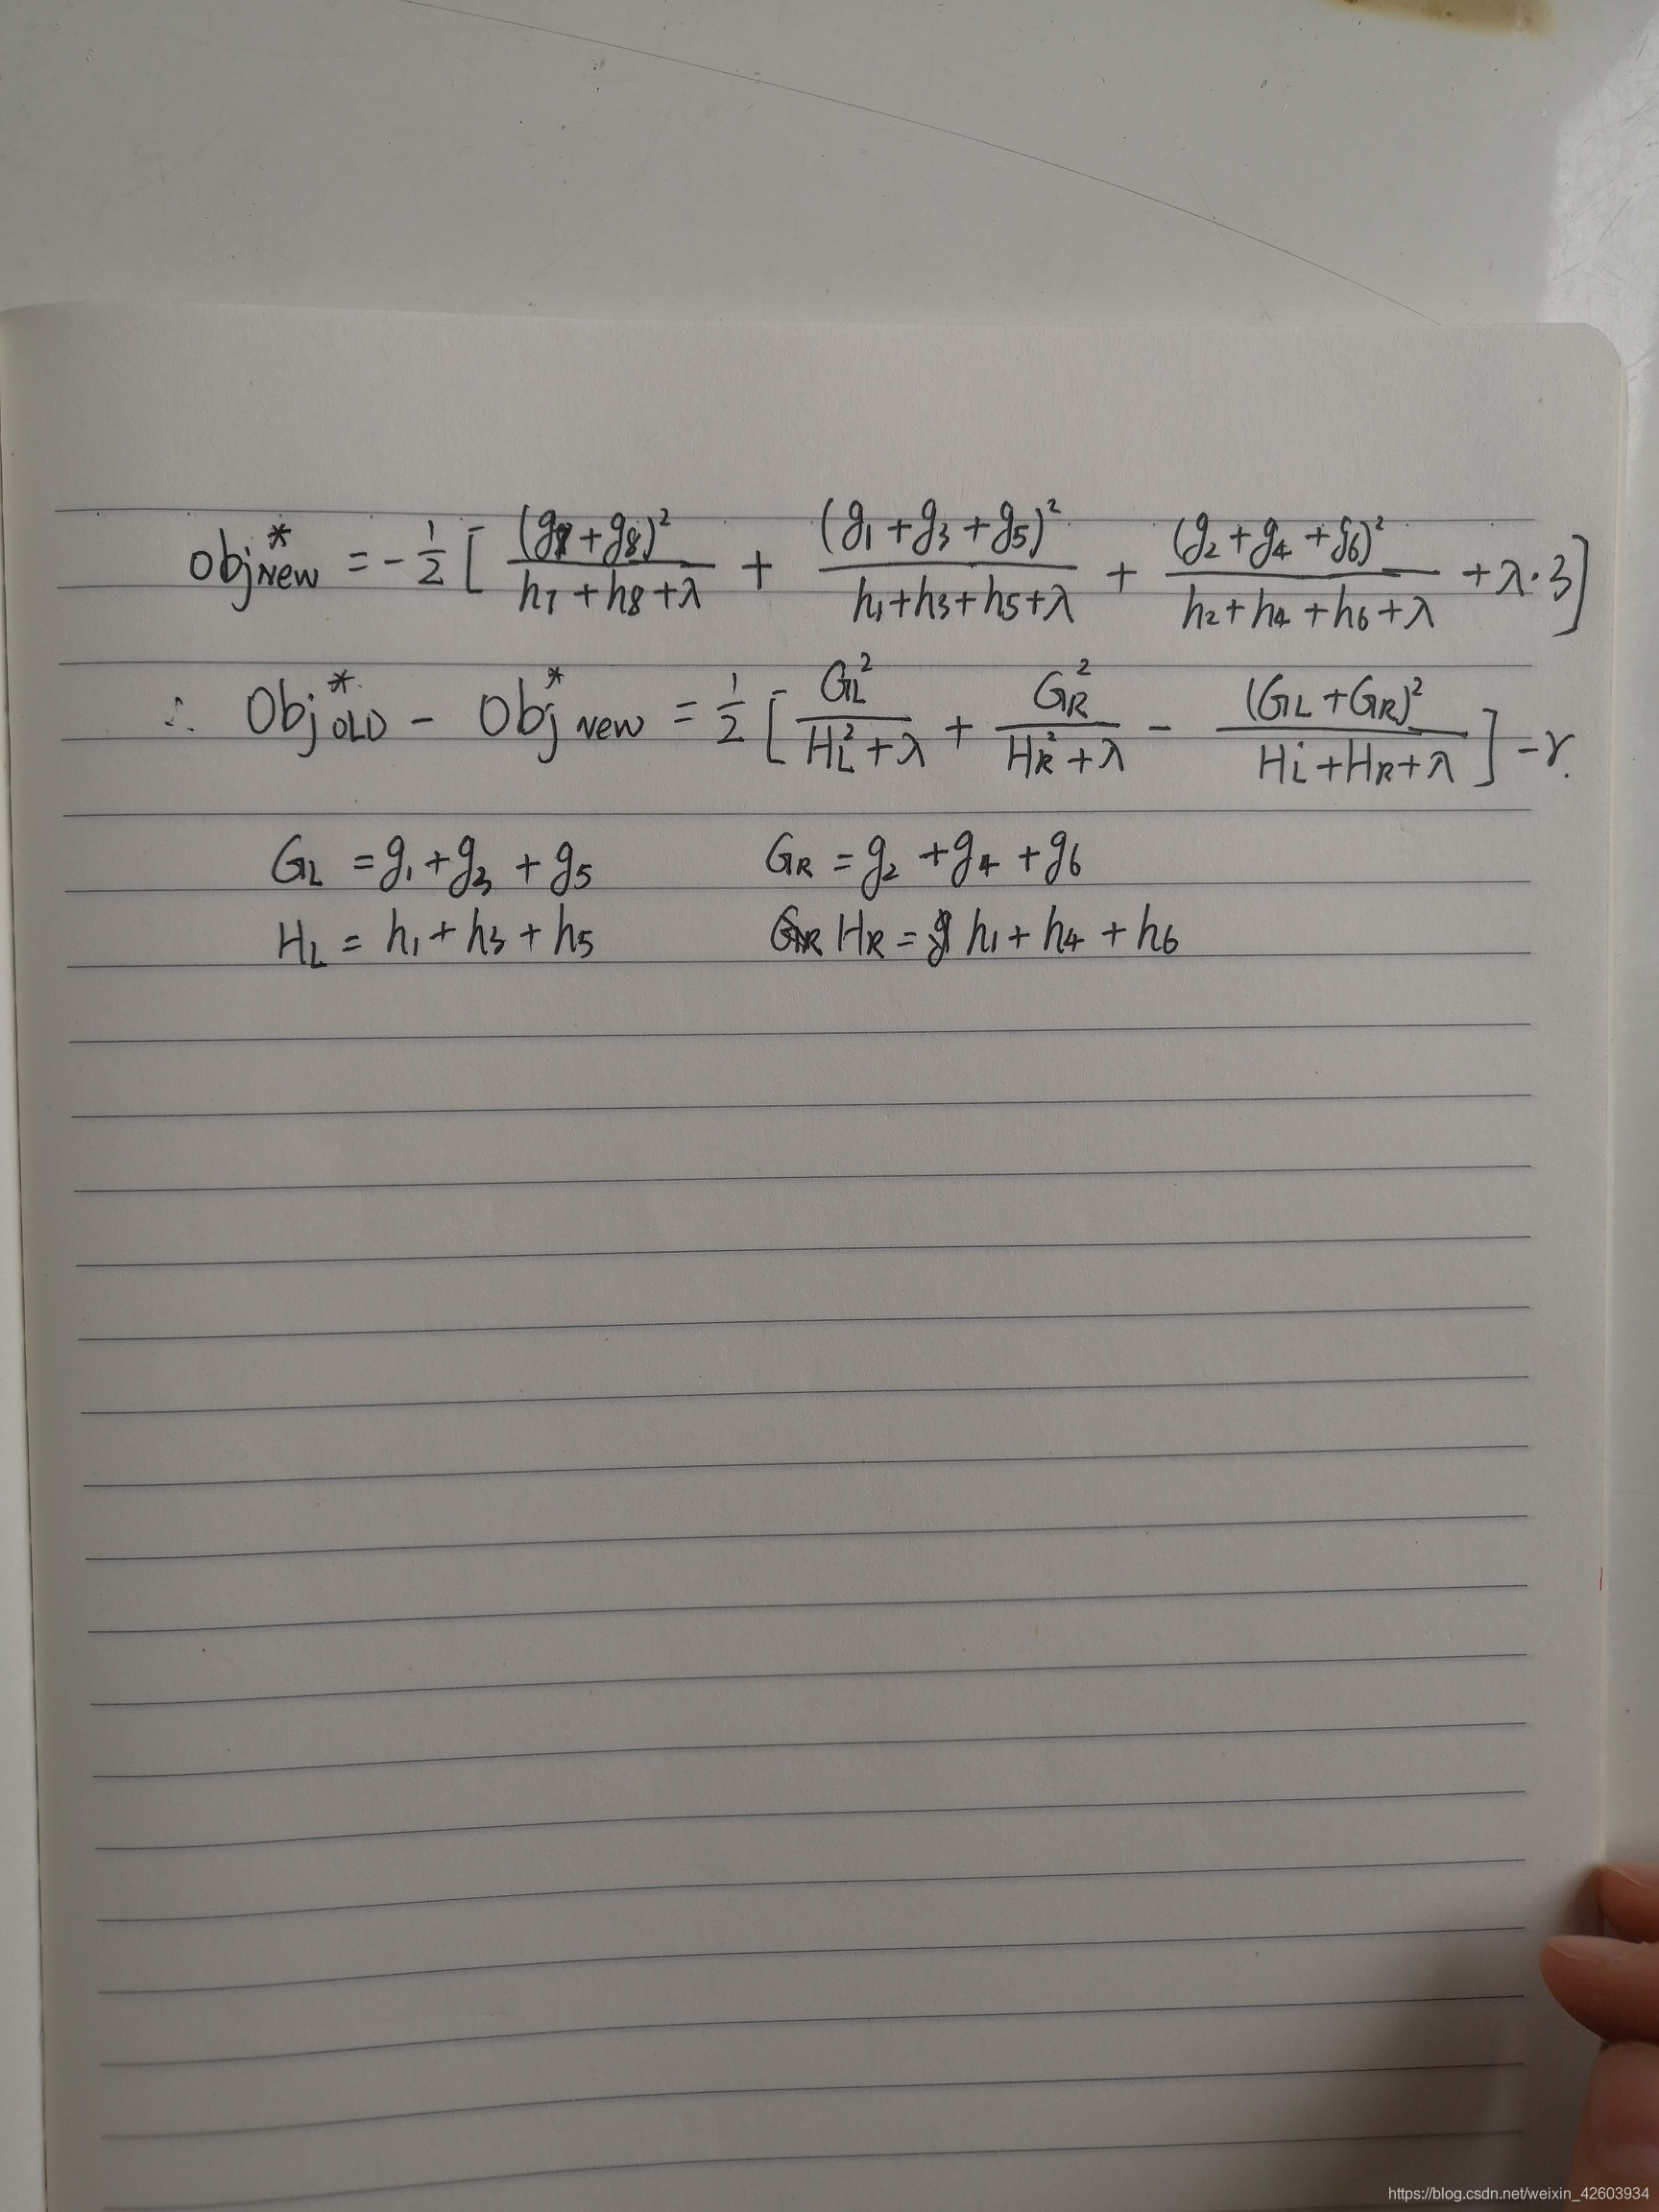 Obj*NEW = -1/2 [ (g7+g8)²/(h7+h8+λ) + (g1+g3+g5)²/(h1+h3+h5+λ) + (g2+g4+g6)²/(h2+h4+h6+λ) +λ·3]
∴ Obj*OLD - Obj*NEW = 1/2 [ GL²/(HL²+λ) + GR²/(HR²+λ) - (GL+GR)²/(HL+HR+λ) ] -γ.
GL = g1+g3+g5 GR = g2+g4+g6
HL = h1+h3+h5 HR = h1+h4+h6
https://blog.csdn.net/weixin_42603934